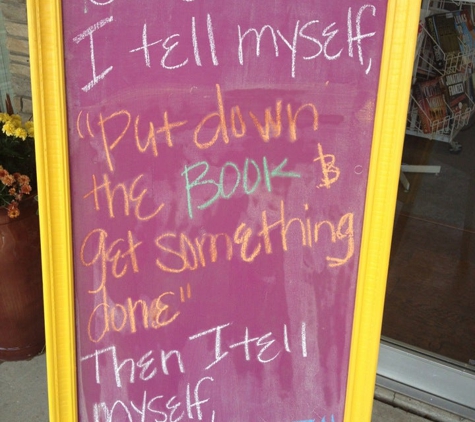 I tell myself,
"Put down
the Book &
get something
done"
Then I tell
myself,